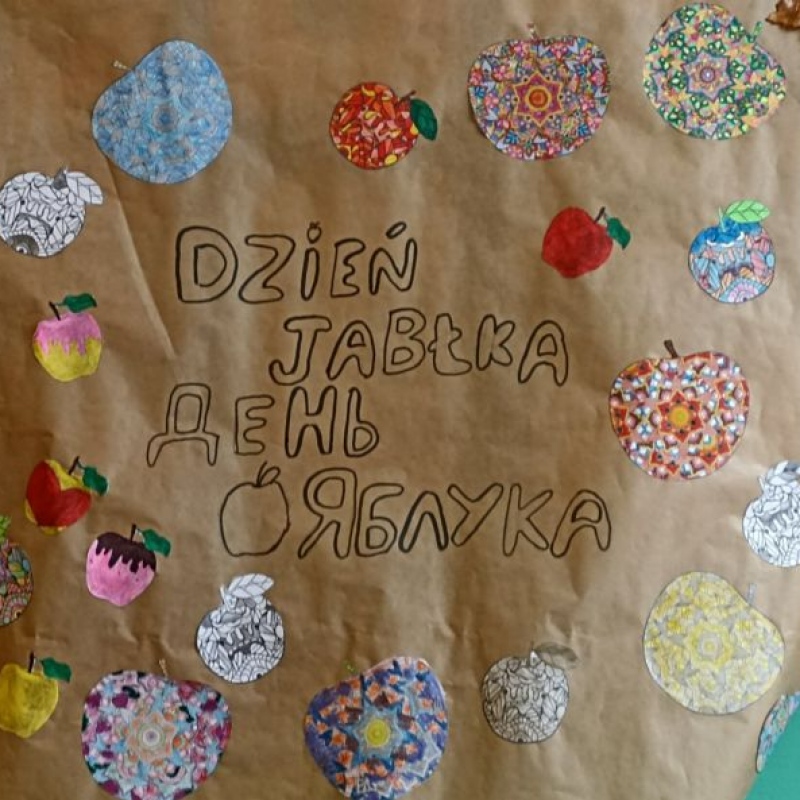 DZIEŃ
JABŁKA
ДЕНЬ
ЯБЛУКА